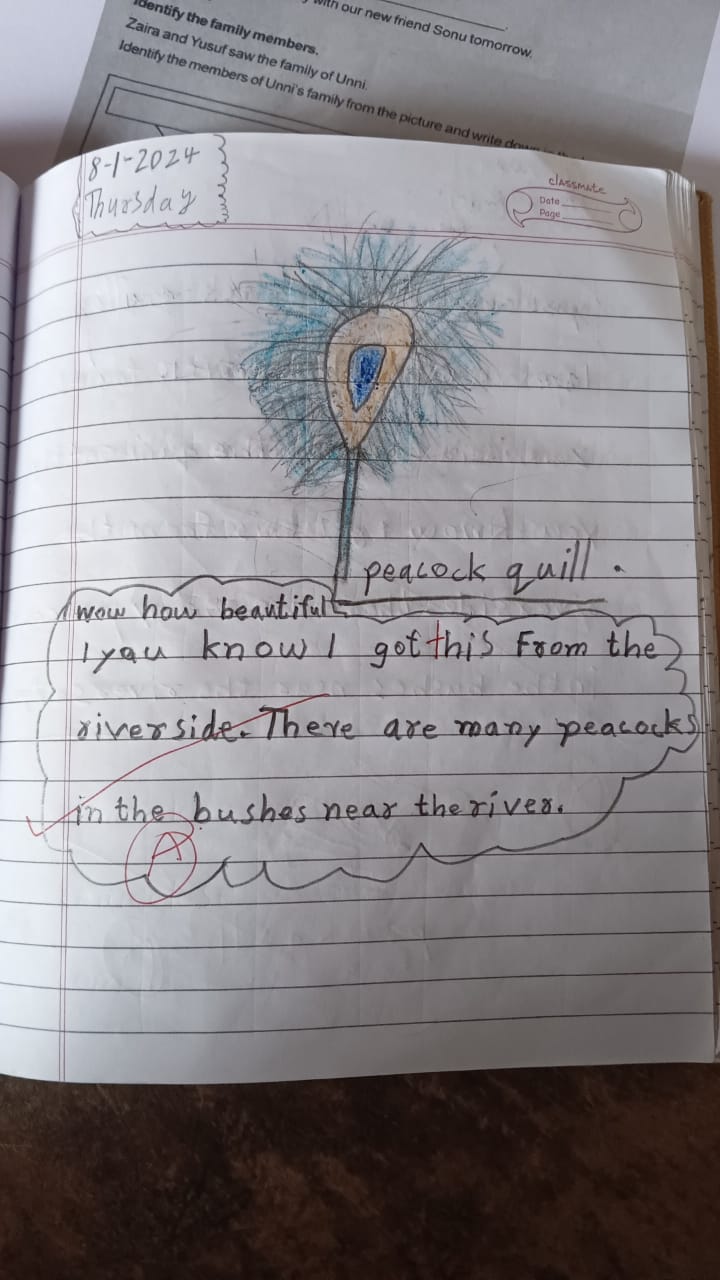 with our new friend Sonu tomorrow.
Identify the family members.
Zaira and Yusuf saw the family of Unni.
Identify the members of Unni's family from the picture and write down
8-1-2024
Thursday
classmate
Date
Page
peacock quill.
wow how beautiful
1 you know I got this From the
riverside. There are many peacocks
in the bushes near the river.
A